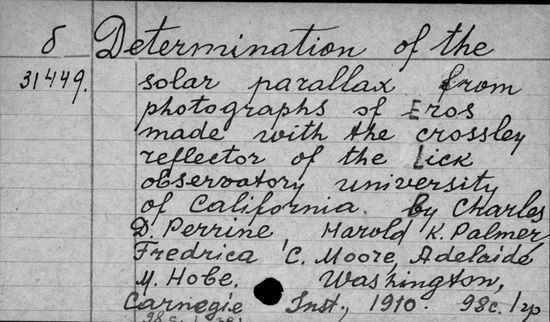 δ Determination of the
31449. solar parallax from
photographs of Eros
made with the crossley
reflector of the Lick
observatory university
of California. by Charles
D. Perrine Harold K. Palmer,
Fredrica C. Moore, Adelaide
M. Hobe. Washington,
Carnegie Inst., 1910. 98c. 1 yp